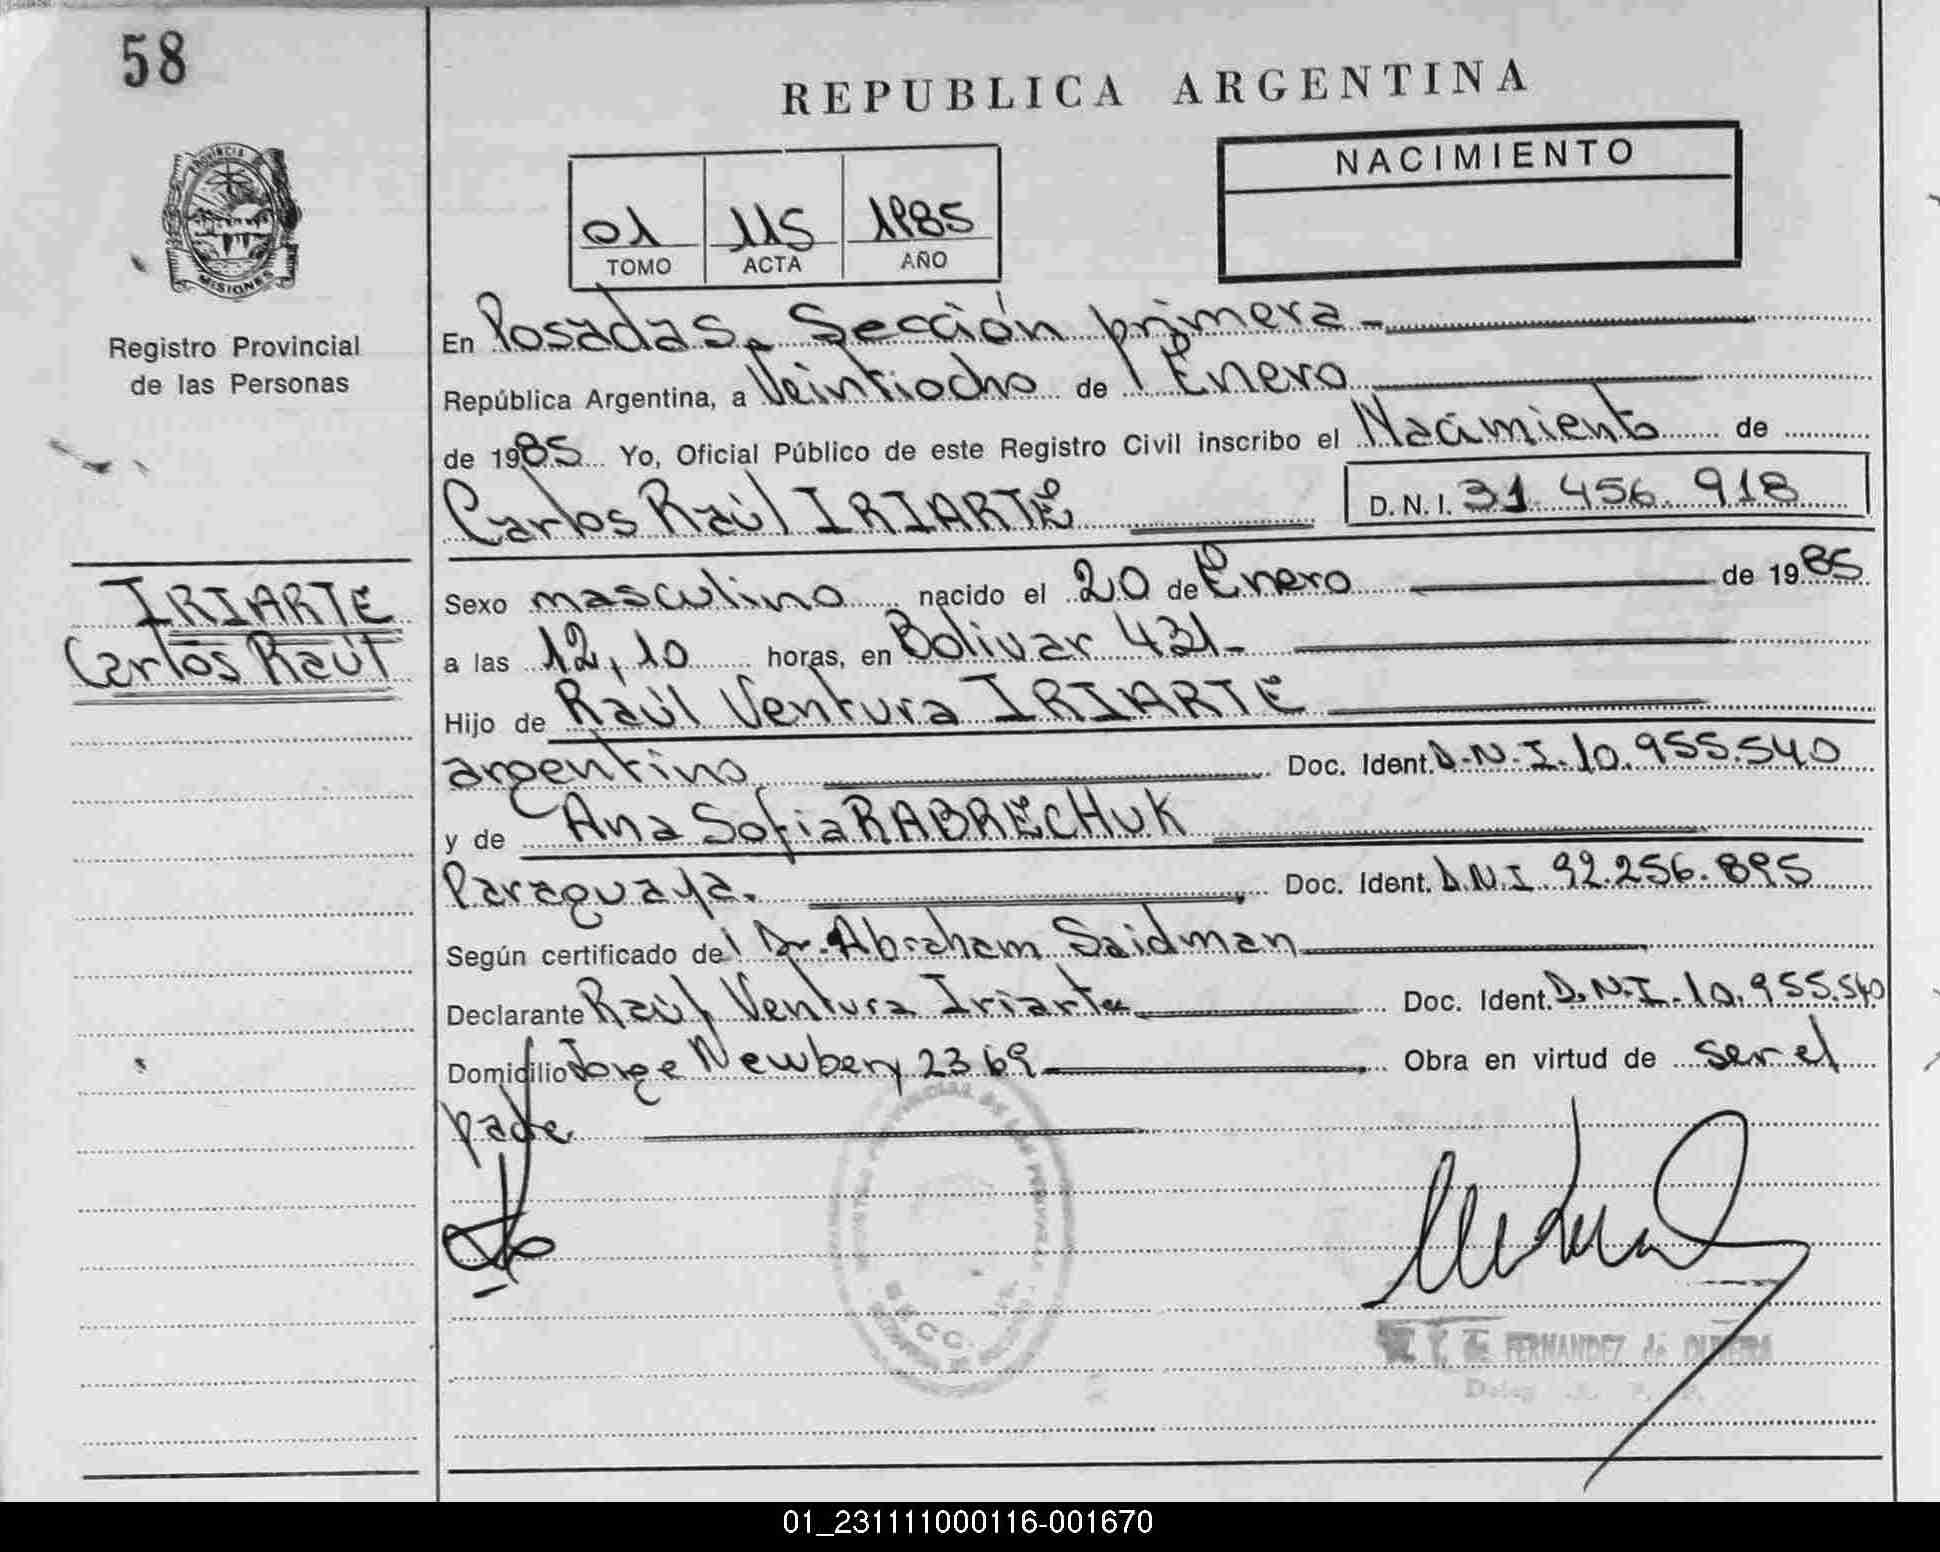 58
REPUBLICA ARGENTINA
NACIMIENTO
01 115 1985
TOMO ACTA AÑO
PROVINCIA DE
MISIONES
Registro Provincial
de las Personas
En Posadas, Sección primera-
República Argentina, a Veintiocho de Enero
de 1985 Yo, Oficial Público de este Registro Civil inscribo el Nacimiento de
Carlos Raúl IRIARTE D. N. I. 31.456.918
IRIARTE
Carlos Raúl
Sexo masculino nacido el 20 de Enero de 1985
a las 12,10 horas, en Bolivar 431-
Hijo de Raúl Ventura IRIARTE
argentino Doc. Ident. D.N.I. 10.955.540
y de Ana Sofia RABRECHUK
Paraguaya. Doc. Ident. D.N.I 92.256.895
Según certificado del Dr. Abraham Saidman
Declarante Raúl Ventura Iriarte Doc. Ident. D.N.I. 10.955.540
Domicilio Jorge Newbery 2369 Obra en virtud de ser el
padre
PROVINCIAL DE LAS PERSONAS
FERNANDEZ de OLIVEIRA
01_231111000116-001670